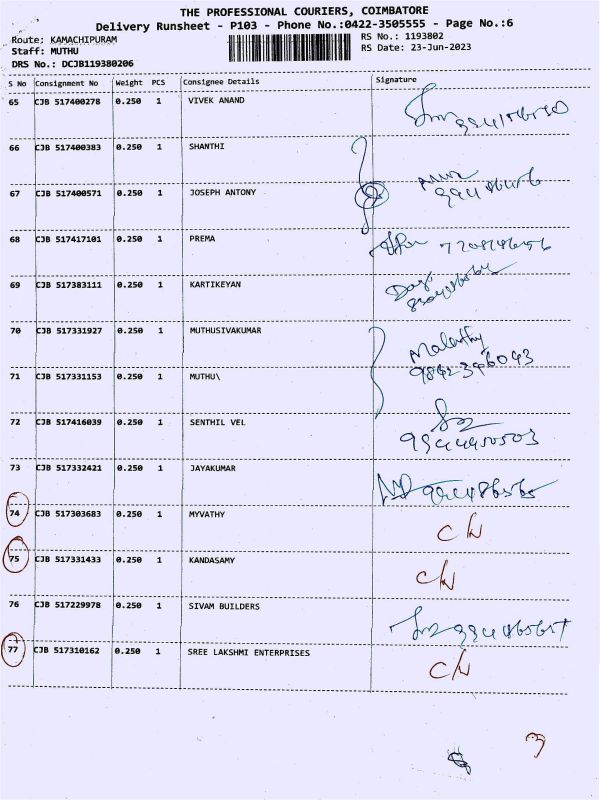 THE PROFESSIONAL COURIERS, COIMBATORE
Delivery Runsheet - P103 - Phone No.:0422-3505555 - Page No.:6
Route: KAMACHIPURAM
Staff: MUTHU
DRS No.: DCJB119380206
RS No.: 1193802
RS Date: 23-Jun-2023
S No Consignment No Weight PCS Consignee Details Signature
65 CJB 517400278 0.250 1 VIVEK ANAND
66 CJB 517400383 0.250 1 SHANTHI
67 CJB 517400571 0.250 1 JOSEPH ANTONY
68 CJB 517417101 0.250 1 PREMA
69 CJB 517383111 0.250 1 KARTIKEYAN
70 CJB 517331927 0.250 1 MUTHUSIVAKUMAR Malathy
9842346043
71 CJB 517331153 0.250 1 MUTHU\
72 CJB 517416039 0.250 1 SENTHIL VEL
73 CJB 517332421 0.250 1 JAYAKUMAR
74 CJB 517303683 0.250 1 MYVATHY
75 CJB 517331433 0.250 1 KANDASAMY
76 CJB 517229978 0.250 1 SIVAM BUILDERS
77 CJB 517310162 0.250 1 SREE LAKSHMI ENTERPRISES
3